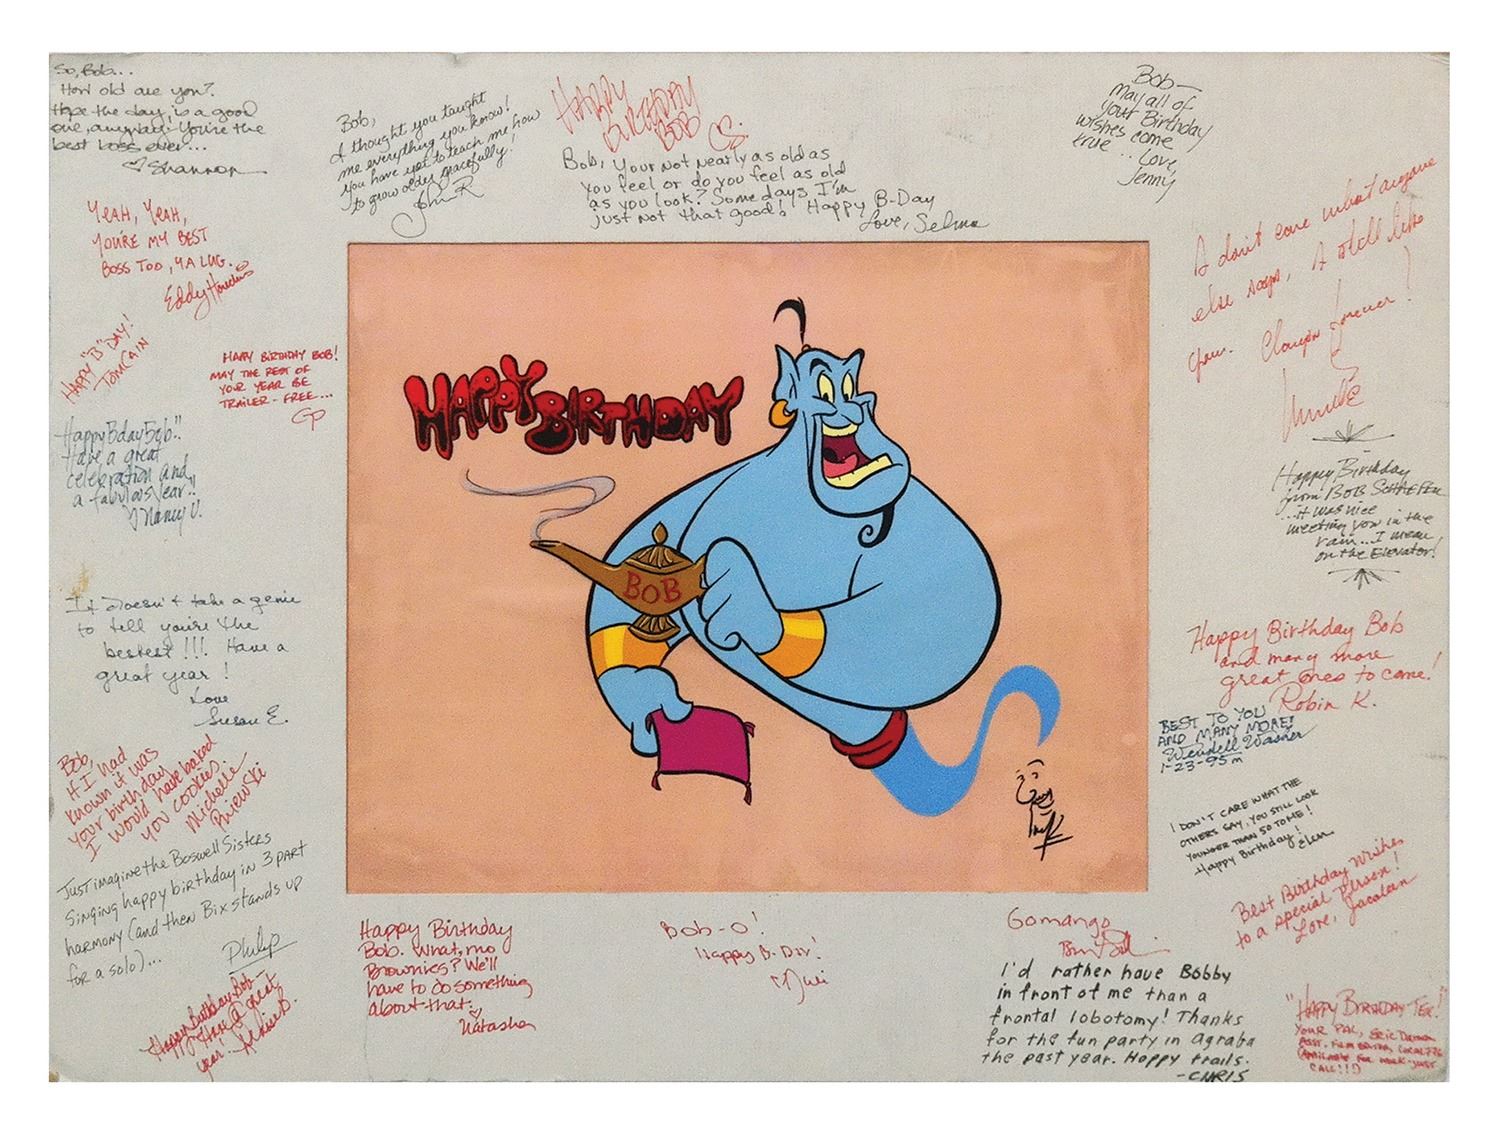 So, Bob...
How old are you?
Hope the day is a good
one, anyway! You're the
best boss ever...
♡ Shannon
Bob,
I thought you taught
me everything you know!
You have yet to teach me how
to grow older gracefully!
John R
HAPPY
BIRTHDAY
BOB
Bob, Your not nearly as old as
you feel or do you feel as old
as you look? Some days I'm
just not that good! Happy B-Day
Love, Selma
Bob—
May all of
your Birthday
wishes come
true... Love,
Jenny
YEAH, YEAH,
YOU'RE MY BEST
BOSS TOO, YA LUG.
Eddy
HAPPY "B" DAY!
TOM CAIN
HAPPY BIRTHDAY BOB!
MAY THE REST OF
YOUR YEAR BE
TRAILER-FREE...
Happy Bday Bob!!
Have a great
celebration and
a fabulous year!!
♡ Nancy U.
It doesn't take a genie
to tell you're the
bestest!!! Have a
great year!
Love
Susan E.
Bob,
If I had
known it was
your birthday
I would have baked
you cookies.
Michelle
Just imagine the Boswell Sisters
singing happy birthday in 3 part
harmony (and then Bix stands up
for a solo)...
Philip
Happy Birthday Bob—
Have a great
year!
HAPPY BIRTHDAY
BOB
I don't care what anyone
else says, I still like
you. forever!
Happy Birthday
from BOB
...it was nice
meeting you in the
rain...I mean
on the Elevator!
Happy Birthday Bob
and many more
great ones to come!
Robin K.
BEST TO YOU
AND MANY MORE!
Wendell Washer
1-23-95
I DON'T CARE WHAT THE
OTHERS SAY, YOU STILL LOOK
YOUNGER THAN 50 TO ME!
Happy Birthday!
Elen
Best Birthday Wishes
to a special Person!
Love, Jacolean
Happy Birthday
Bob. What, no
Brownies? We'll
have to do something
about that.
♡ Natasha
Bob-O!
Happy B-Day!
Gomango
I'd rather have Bobby
in front of me than a
frontal lobotomy! Thanks
for the fun party in Agraba
the past year. Happy trails.
-CHRIS
"HAPPY BIRTHDAY TEX!"
YOUR PAL, ERIC
ASST. FILM EDITOR, LOCAL 776
(AVAILABLE FOR WORK-JUST
CALL!!)